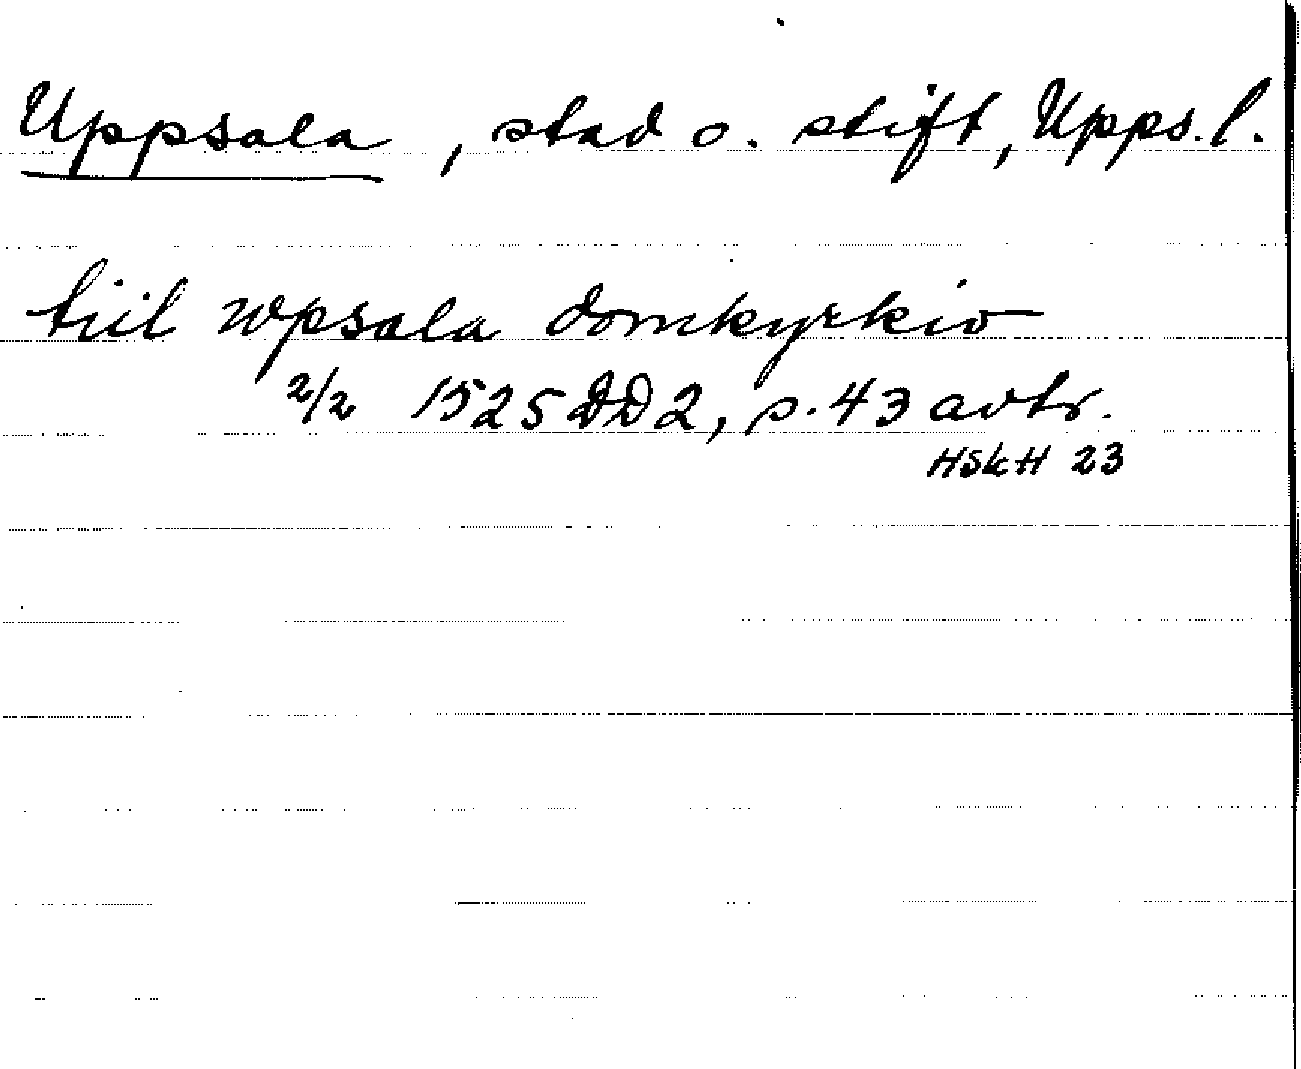 Uppsala, stad o. stift, Upps. l.
tiil wpsala domkyrkio
2/2 1525 DD2, s. 43 avtr.
HSkH 23